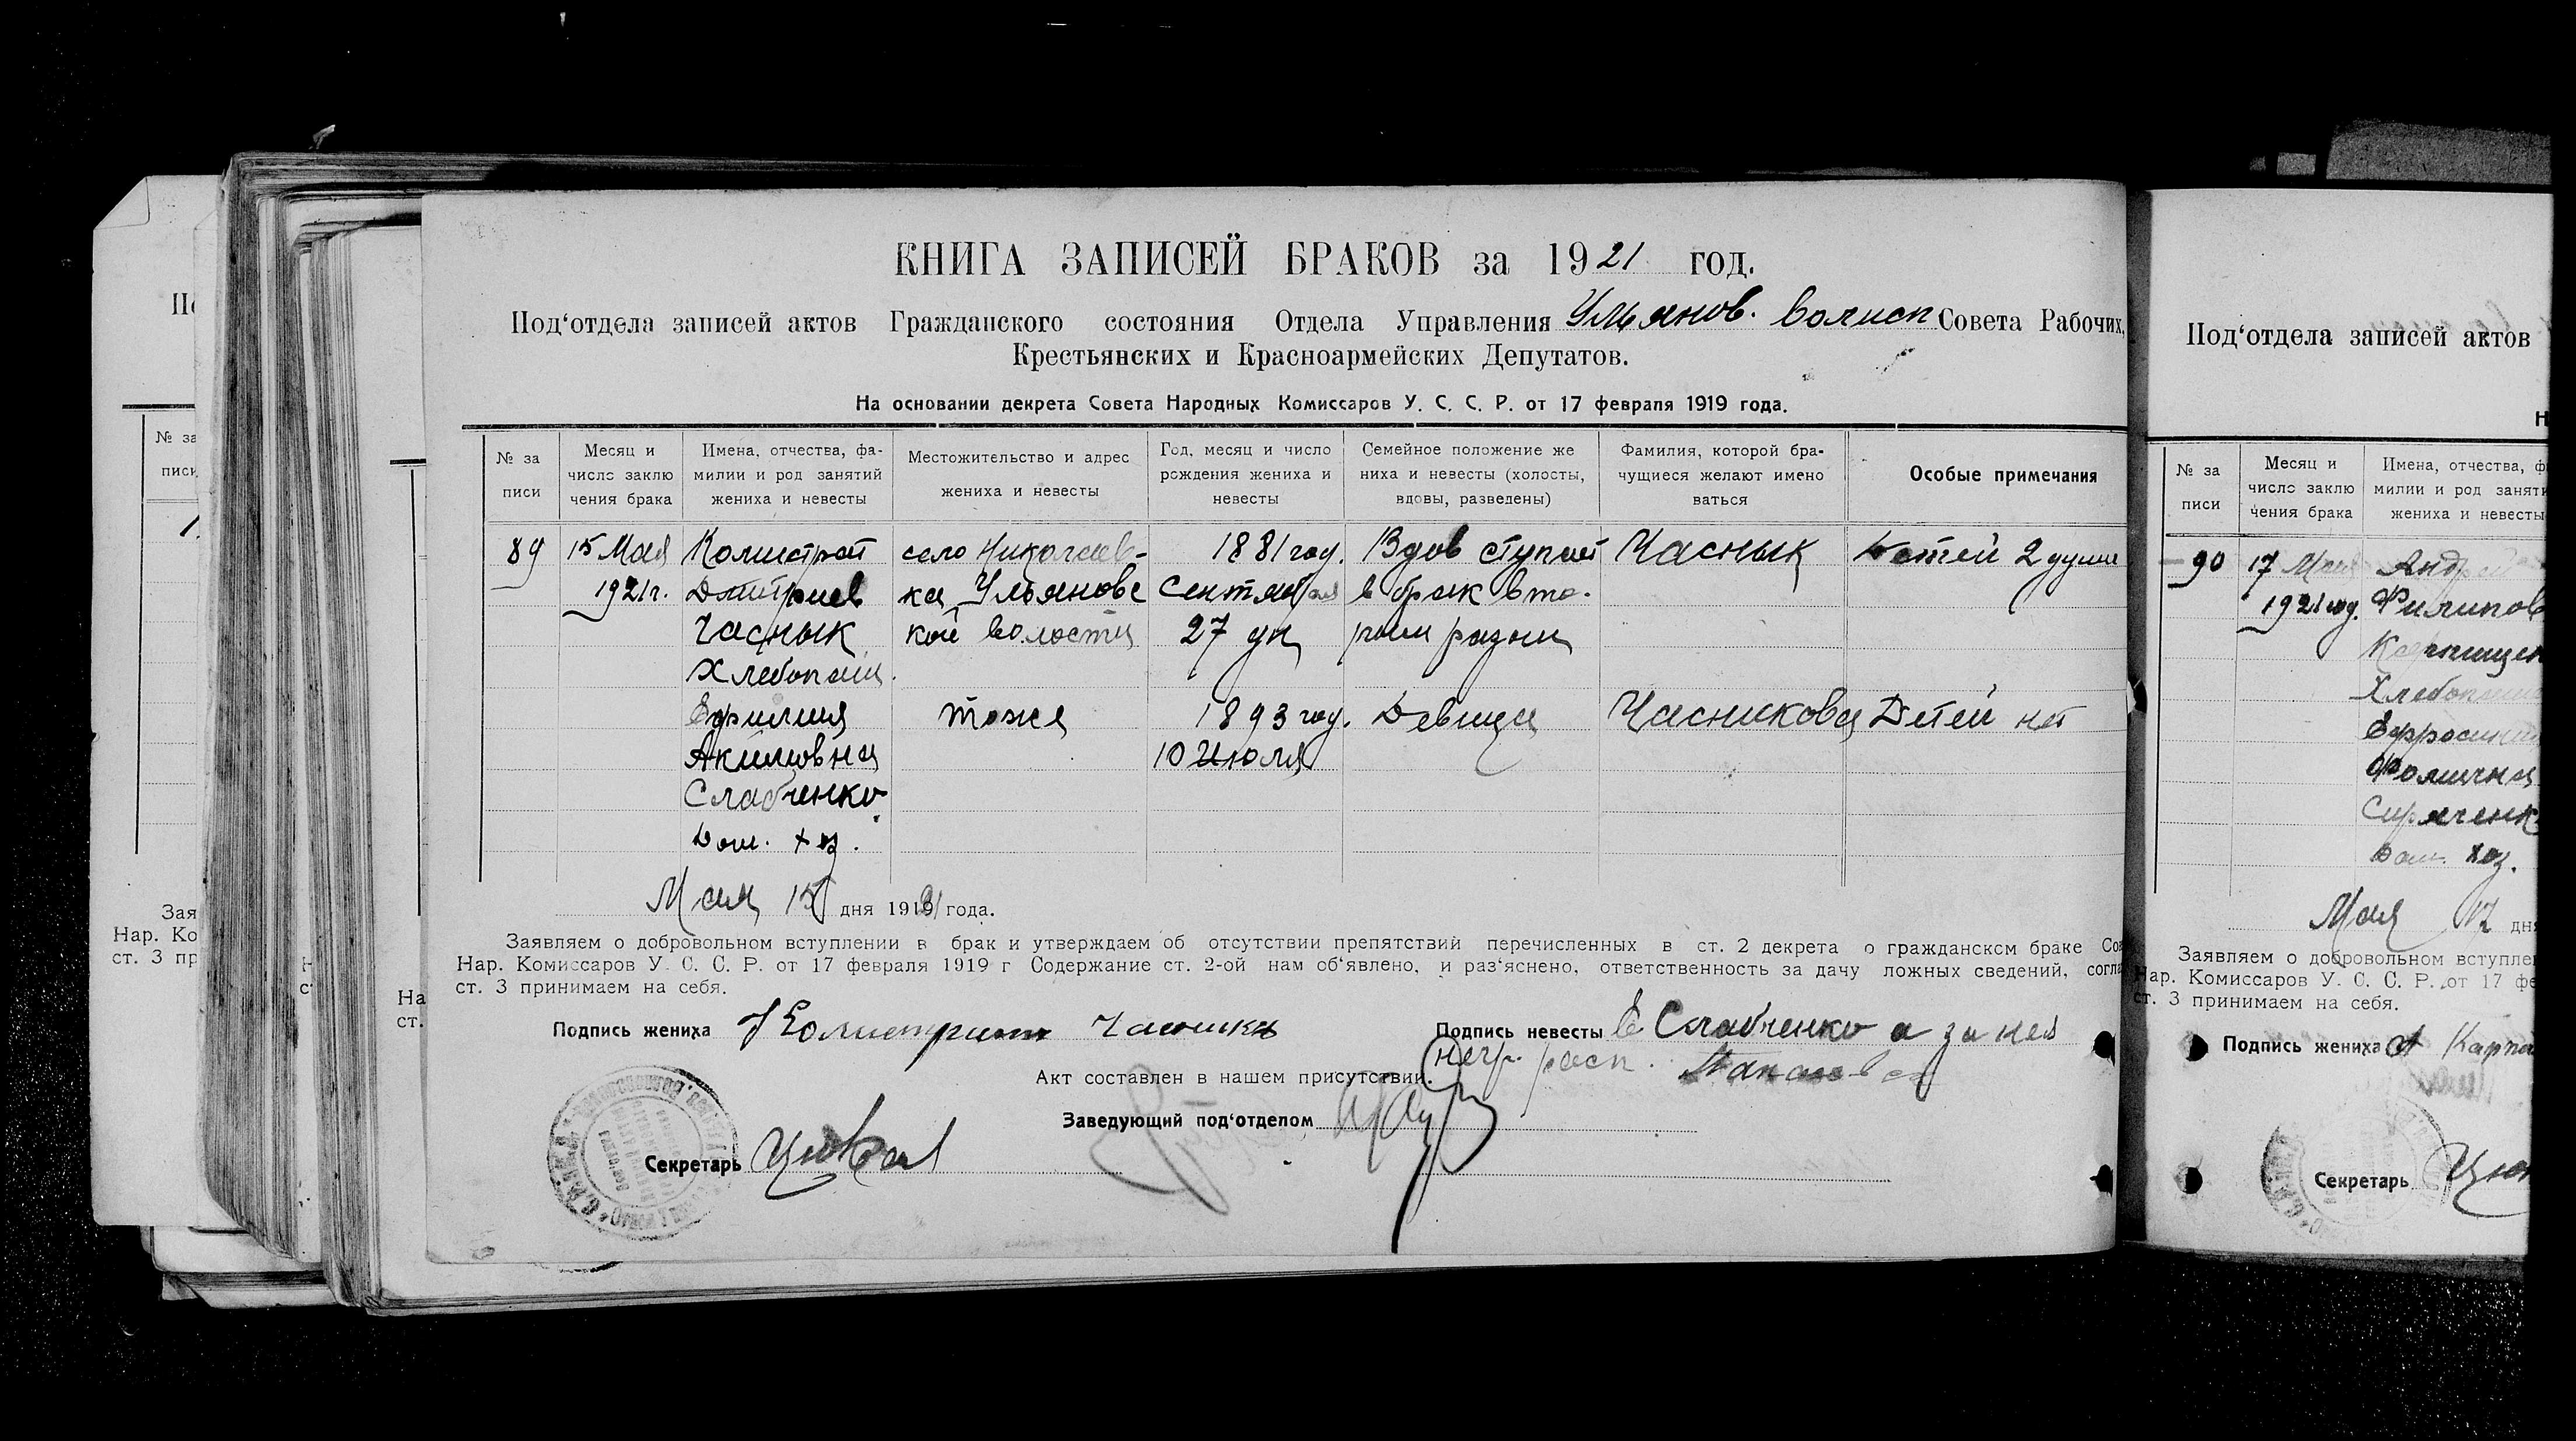 КНИГА ЗАПИСЕЙ БРАКОВ за 1921 год.
Под‘отдела записей актов Гражданского состояния Отдела Управления Ульянов. волисп Совета Рабочих,
Крестьянских и Красноармейских Депутатов.
На основании декрета Совета Народных Комиссаров У. С. С. Р. от 17 февраля 1919 года.
№ за писи
Месяц и число заклю чения брака
Имена, отчества, фа- милии и род занятий жениха и невесты
Местожительство и адрес жениха и невесты
Год, месяц и число рождения жениха и невесты
Семейное положение же ниха и невесты (холосты, вдовы, разведены)
Фамилия, которой бра- чущиеся желают имено ваться
Особые примечания
89 15 Мая Колистрат село Николаев- 1881 год. Вдов ступает Часнык Детей 2 души
1921 г. Дмитриев ка Ульяновс Сентября в брак вто-
Часнык кой волости 27 дн рым разом
Хлебопаш.
Ефимия тоже 1893 год. Девица Часникова Детей нет
Акимовна 10 Июля
Слабченко
Дом. хоз.
Мая 15 дня 1921 года.
Заявляем о добровольном вступлении в брак и утверждаем об отсутствии препятствий перечисленных в ст. 2 декрета о гражданском браке Сов
Нар. Комиссаров У. С. С. Р. от 17 февраля 1919 г Содержание ст. 2-ой нам об‘явлено, и раз‘яснено, ответственность за дачу ложных сведений, согла
ст. 3 принимаем на себя.
Подпись жениха Колистрат Часник
Подпись невесты Е Слабченко а за нея
негр. росп.
Акт составлен в нашем присутствии.
Заведующий под‘отделом
Секретарь
Под‘отдела записей актов
Н
№ за писи
Месяц и число заклю чения брака
Имена, отчества, ф милии и род заняти жениха и невесты
90 17 Мая Андрей
1921 год. Филипов
Карпищен
Хлебопаш
Ефросиния
Фомична
Сиряченк
Дом. хоз.
Мая 17 дн
Заявляем о добровольном вступле
Нар. Комиссаров У. С. С. Р. от 17 фе
ст. 3 принимаем на себя.
Подпись жениха А Карпи
Секретарь
№ за
писи
Зая
Нар. Ко
ст. 3 пр
На
ст.